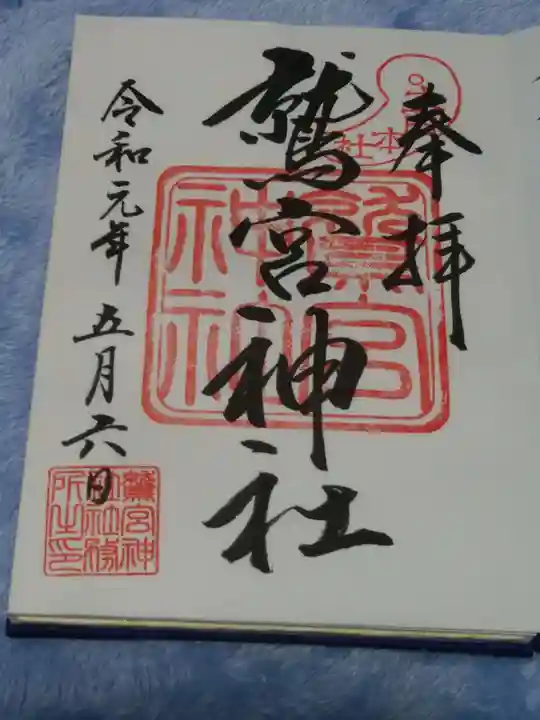 奉拝
鷲宮神社
令和元年五月六日
鷲宮神社
鷲宮神
社社務
所之印
本社